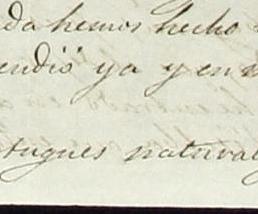 da hemos hecho
endió ya y en
tugues natural